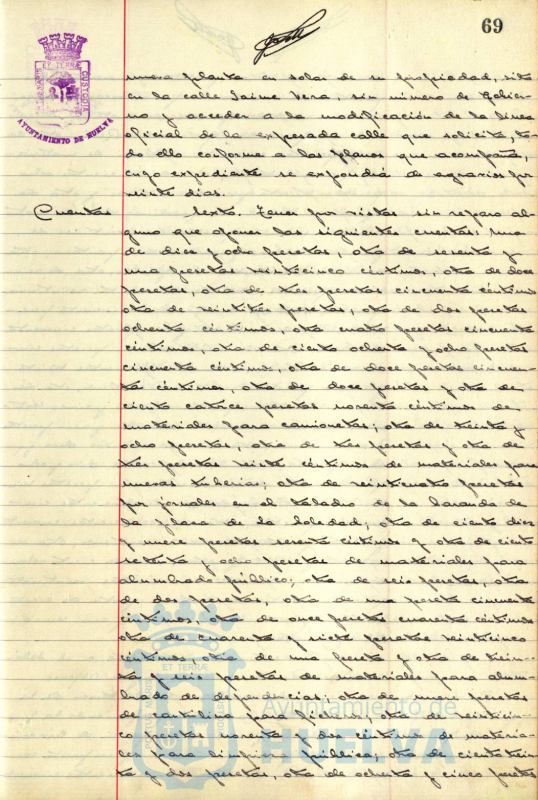 69
PORTUS MARIS ET TERRÆ CUSTODIA
AYUNTAMIENTO DE HUELVA
nueva planta en solar de su propiedad, sito
en la calle Jaime Vera, sin número de Gobier-
no y acceder a la modificación de la línea
oficial de la expresada calle que solicita, to-
do ello conforme a los planos que acompaña,
cuyo expediente se expondrá de agravios por
veinte días.
Cuentas
Sexto. Tener por vistas sin reparo al-
guno que oponer las siguientes cuentas: una
de diez y ocho pesetas, otra de sesenta y
una pesetas veinticinco céntimos, otra de doce
pesetas, otra de tres pesetas cincuenta céntimos
otra de veintitrés pesetas, otra de dos pesetas
ochenta céntimos, otra cuatro pesetas cincuenta
céntimos, otra de ciento ochenta y ocho pesetas
cincuenta céntimos, otra de doce pesetas cincuen-
ta céntimos, otra de doce pesetas y otra de
ciento catorce pesetas noventa céntimos de
materiales para camionetas; otra de treinta y
ocho pesetas, otra de tres pesetas y otra de
tres pesetas veinte céntimos de materiales para
nuevas tuberías; otra de veinticuatro pesetas
por jornales en el taladro de la baranda de
la plaza de la Soledad; otra de ciento diez
y nueve pesetas sesenta céntimos y otra de ciento
setenta y ocho pesetas de materiales para
alumbrado público; otra de seis pesetas, otra
de dos pesetas, otra de una peseta cincuenta
céntimos, otra de once pesetas cuarenta céntimos
otra de cuarenta y siete pesetas veinticinco
céntimos, otra de una peseta y otra de trein-
ta y seis pesetas de materiales para alum-
brado de dependencias; otra de nueve pesetas
de cartulina para ficheros; otra de veinticin-
co pesetas noventa y dos céntimos de materia-
les para limpieza pública; otra de ciento trein-
ta y dos pesetas, otra de ochenta y cinco pesetas
PORTUS MARIS ET TERRÆ CUSTODIA
Ayuntamiento de
HUELVA